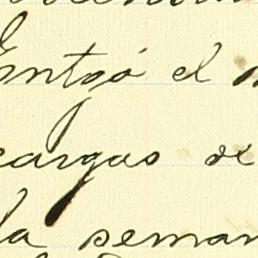 Entgó el
cargas de
la seman